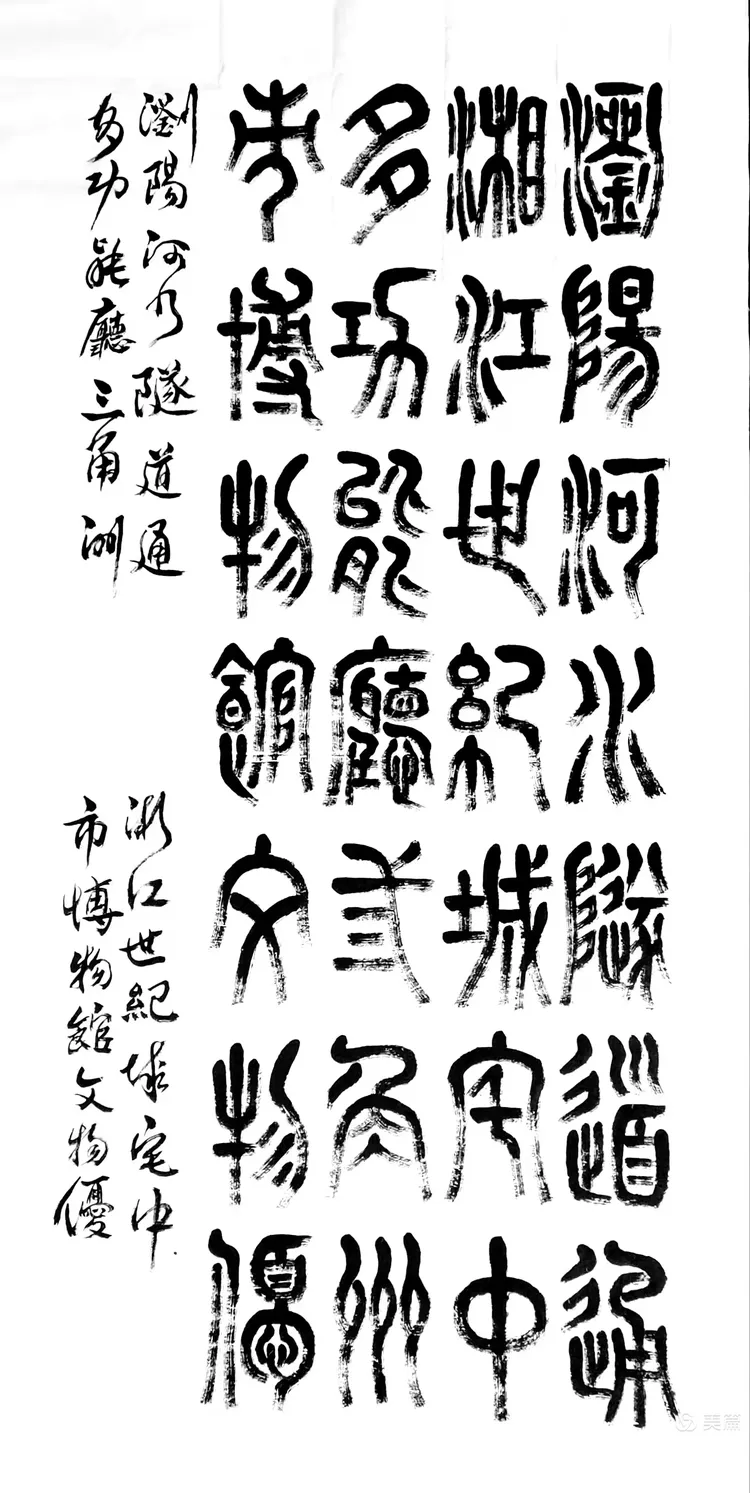 瀏陽河水隧道通
湘江世紀城宅中
多功能廳三角洲
市博物館文物優
瀏陽河水隧道通
湘江世紀城宅中
多功能廳三角洲
市博物館文物優
美篇